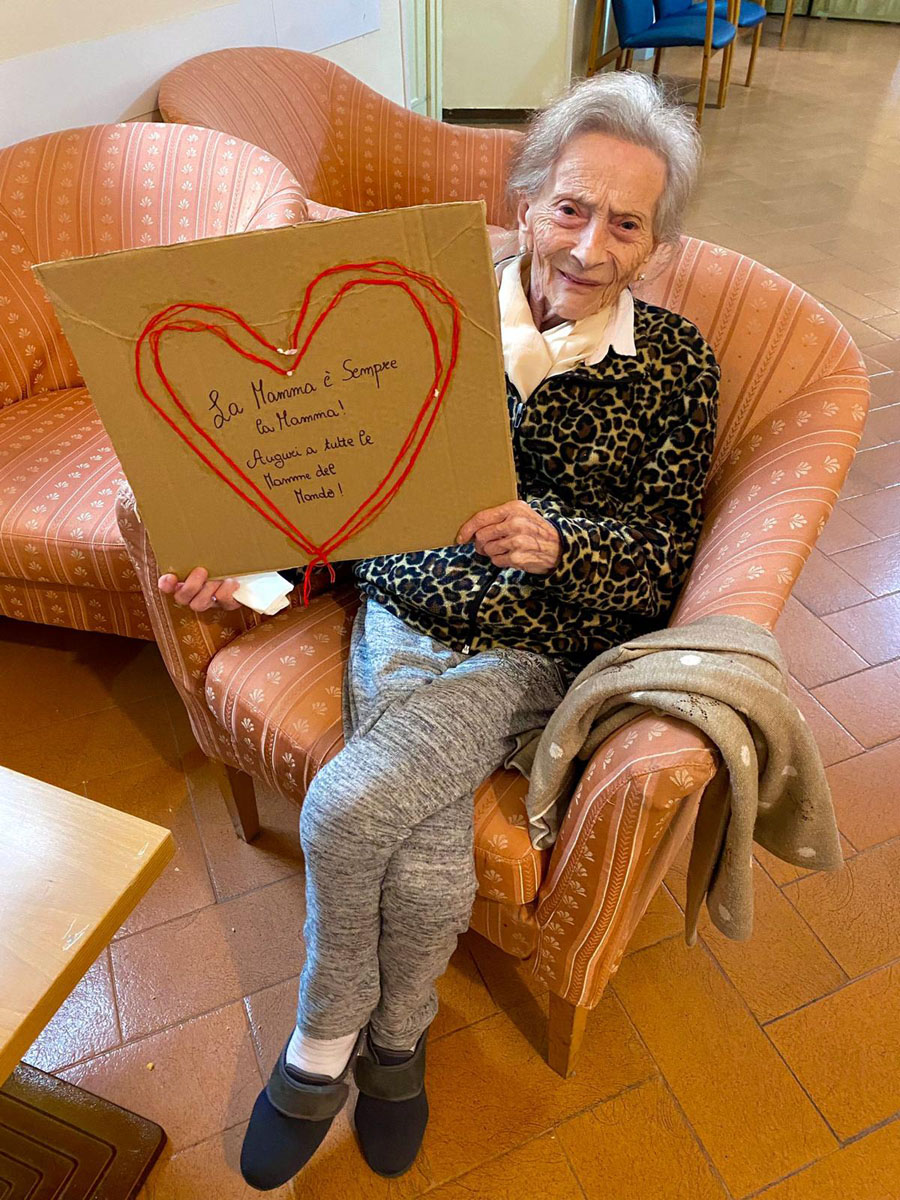 La Mamma è Sempre
la Mamma!
Auguri a tutte le
Mamme del
Mondo!